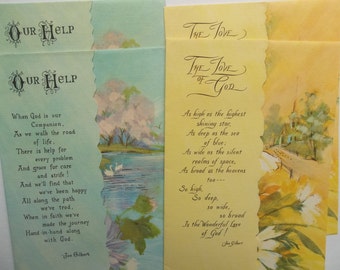 Our Help
Our Help
When God is our
Companion,
As we walk the road
of life,
There is help for
every problem
And grace for care
and strife!
And we'll find that
we've been happy
All along the path
we've trod,
When in faith we've
made the journey
Hand in hand along
with God.
Joe Gilbert
The Love
The Love
of God
As high as the highest
shining star,
As deep as the sea
of blue,
As wide as the silent
realms of space,
As broad as the heavens
too ---
So high,
So deep,
so wide,
so broad
Is the Wonderful Love
of God!
-Joe Gilbert